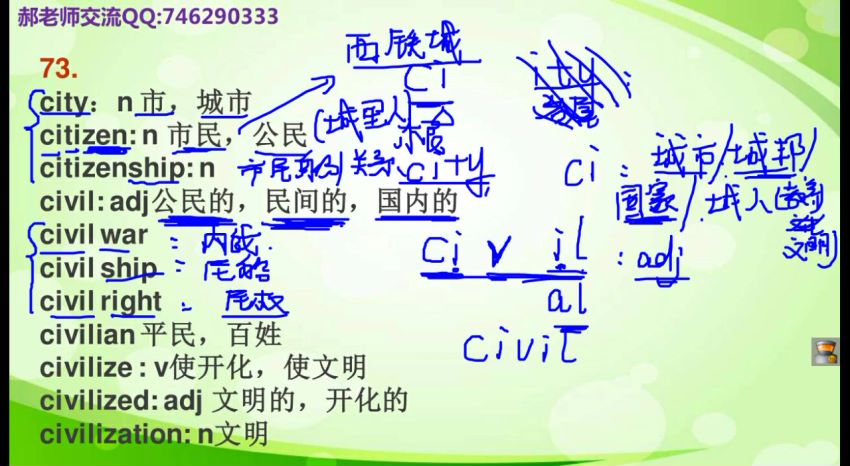 郝老师交流QQ:746290333
西铁城
ci
ity
73.
city：n 市，城市
citizen: n 市民，公民 (城里人)
ci：城市/城邦/
citizenship: n 市民间的关系
city
国家/城人(
文明)
civil: adj公民的，民间的，国内的
civil war：内战.
ci v il：adj
civil ship：民船
al
civil right：民权
civil
civilian 平民，百姓
civilize : v使开化，使文明
civilized: adj 文明的，开化的
civilization: n文明